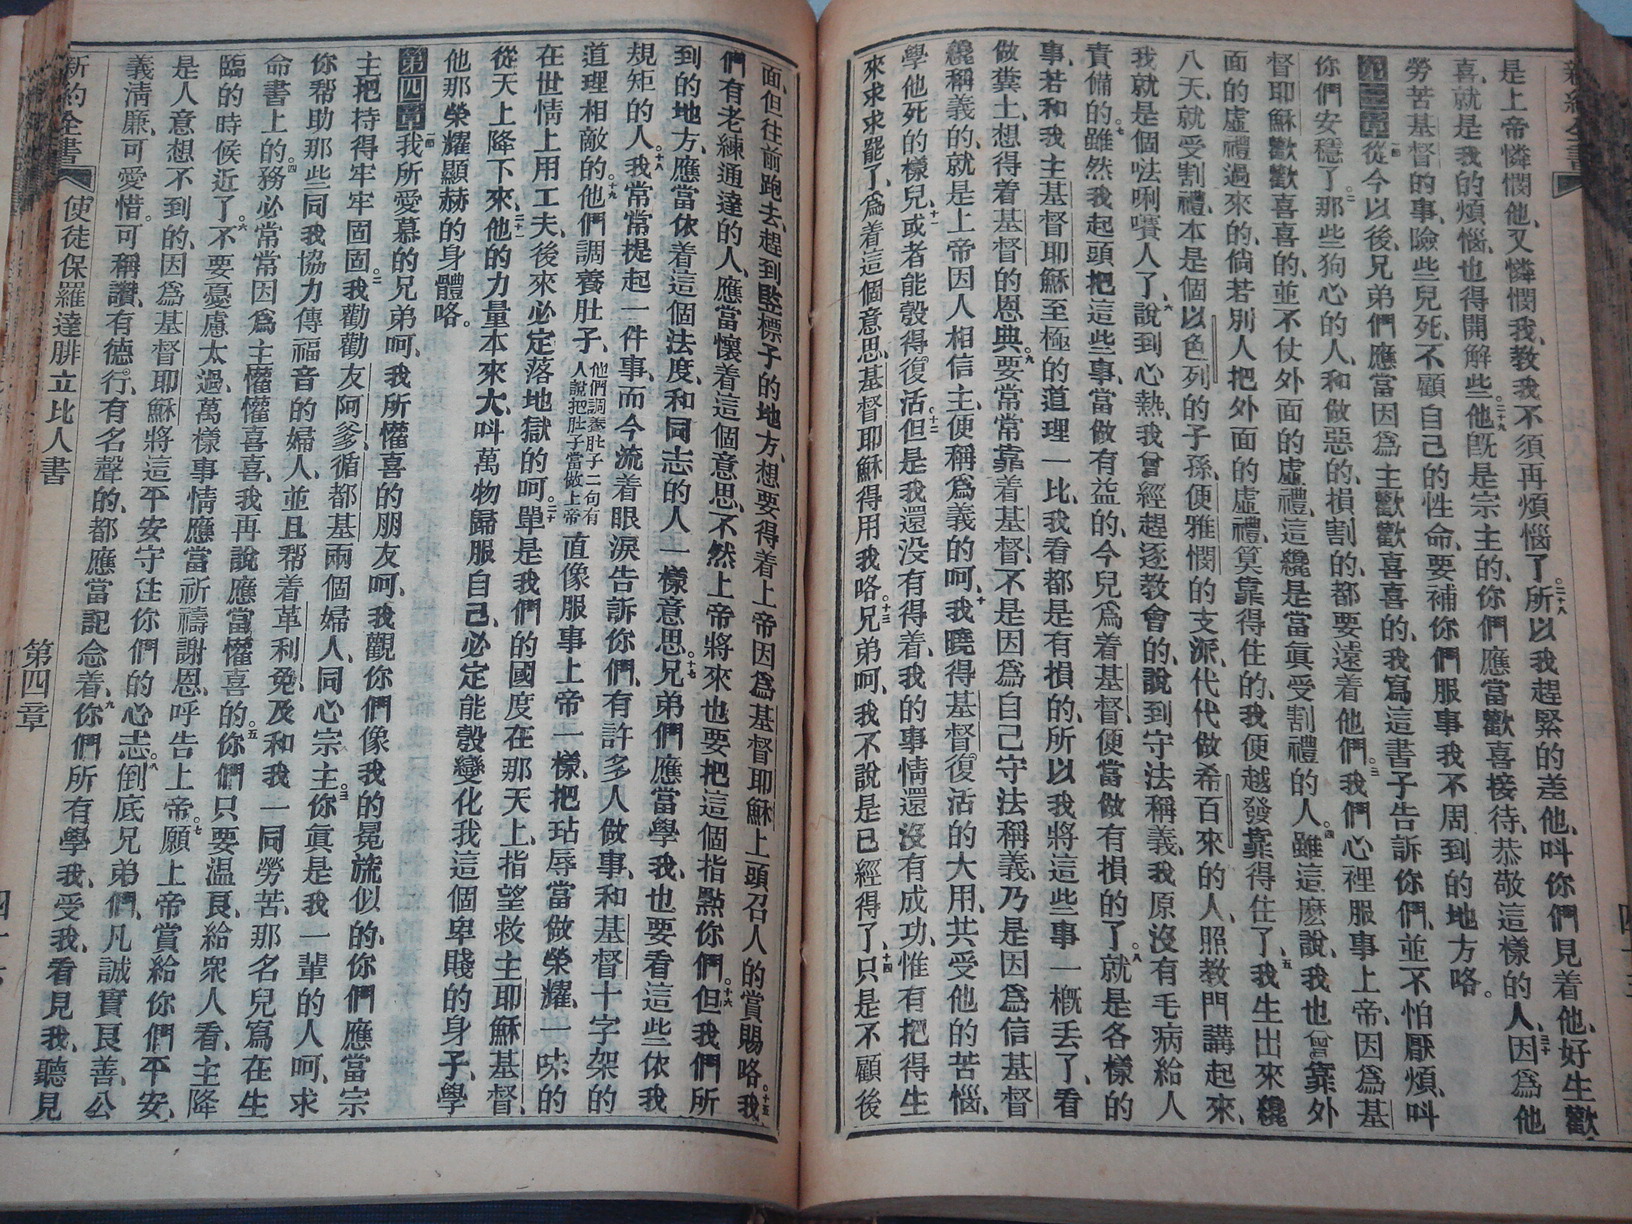 是上帝憐憫他、又憐憫我、教我不須再煩惱了。二十八所以我趕緊的差他、呌你們見着他、好生歡
喜、就是我的煩惱、也得開解些。二十九他旣是宗主的、你們應當歡喜接待、恭敬這樣的人、三十因爲他
勞苦基督的事、險些兒死、不顧自己的性命、要補你們服事我不周到的地方咯。
第三章一節從今以後、兄弟們應當因爲主歡歡喜喜的、我寫這書子告訴你們、並不怕厭煩、呌
你們安穩了。二那些狗心的人、和做惡的、損割的、都要遠着他們。三我們心裡服事上帝、因爲基
督耶穌歡歡喜喜的、並不仗外面的虛禮、這纔是當眞受割禮的人。四雖這麽說、我也曾靠外
面的虛禮過來的、倘若別人把外面的虛禮、算靠得住的、我便越發靠得住了。五我生出來纔
八天、就受割禮、本是個以色列的子孫、便雅憫的支派、代代做希百來的人、照敎門講起來、
我就是個㳒唎賽人了、六說到心熱、我曾經趕逐敎會的、說到守法稱義、我原沒有毛病給人
責備的。七雖然我起頭把這些事、當做有益的、今兒爲着基督、便當做有損的了。八就是各樣的
事、若和我主基督耶穌至極的道理一比、我看都是有損的、所以我將這些事一槪丟了、看
做糞土、想得着基督的恩典。九要常常靠着基督、不是因爲自己守法稱義、乃是因爲信基督
纔稱義的、就是上帝因人相信主、便稱爲義的呵、十我曉得基督復活的大用、共受他的苦惱、
學他死的樣兒、十一或者能彀得復活。十二但是我還没有得着、我的事情還沒有成功、惟有把得生
來求求求罷了、爲着這個意思、基督耶穌得用我咯。十三兄弟呵、我不說是已經得了、十四只是不顧後
面、但往前跑去、趕到監標子的地方、想要得着上帝因爲基督耶穌上頭召人的賞賜咯。十五我
們有老練通達的人、應當懷着這個意思、不然上帝將來也要把這個指點你們。十六但我們所
到的地方、應當依着這個法度、和同志的人一樣意思。十七兄弟們應當學我、也要看這些依我
規矩的人。十八我常常提起一件事、而今流着眼淚告訴你們、有許多人做事、和基督十字架的
道理相敵的。十九他們調養肚子、他們調養肚子二句有人說把肚子當做上帝直像服事上帝一樣、把玷辱當做榮耀、一味的
在世情上用工夫、後來必定落地獄的呵。二十單是我們的國度在那天上、指望救主耶穌基督、
從天上降下來、二十一他的力量本來大、呌萬物歸服自己、必定能彀變化我這個卑賤的身子、學
他那榮耀顯赫的身體咯。
第四章一節我所愛慕的兄弟呵、我所懽喜的朋友呵、我觀你們像我的冕旒似的、你們應當宗
主、把持得牢牢固固。二我勸勸友阿爹、循都基兩個婦人、同心宗主。三你眞是我一輩的人呵、求
你帮助那些同我協力傳福音的婦人、並且帮着革利免、及和我一同勞苦、那名兒寫在生
命書上的。四務必常常因爲主懽懽喜喜、我再說應當懽喜的。五你們只要温良、給眾人看、主降
臨的時候近了。六不要憂慮太過、萬樣事情應當祈禱謝恩、呼告上帝。七願上帝賞給你們平安、
是人意想不到的、因爲基督耶穌將這平安守住你們的心志。八倒底兄弟們、凡誠實良善、公
義淸廉、可愛惜、可稱讚、有德行、有名聲的、都應當記念着、九你們所有學我、受我、看見我、聽見
新約全書 使徒保羅達腓立比人書 第四章